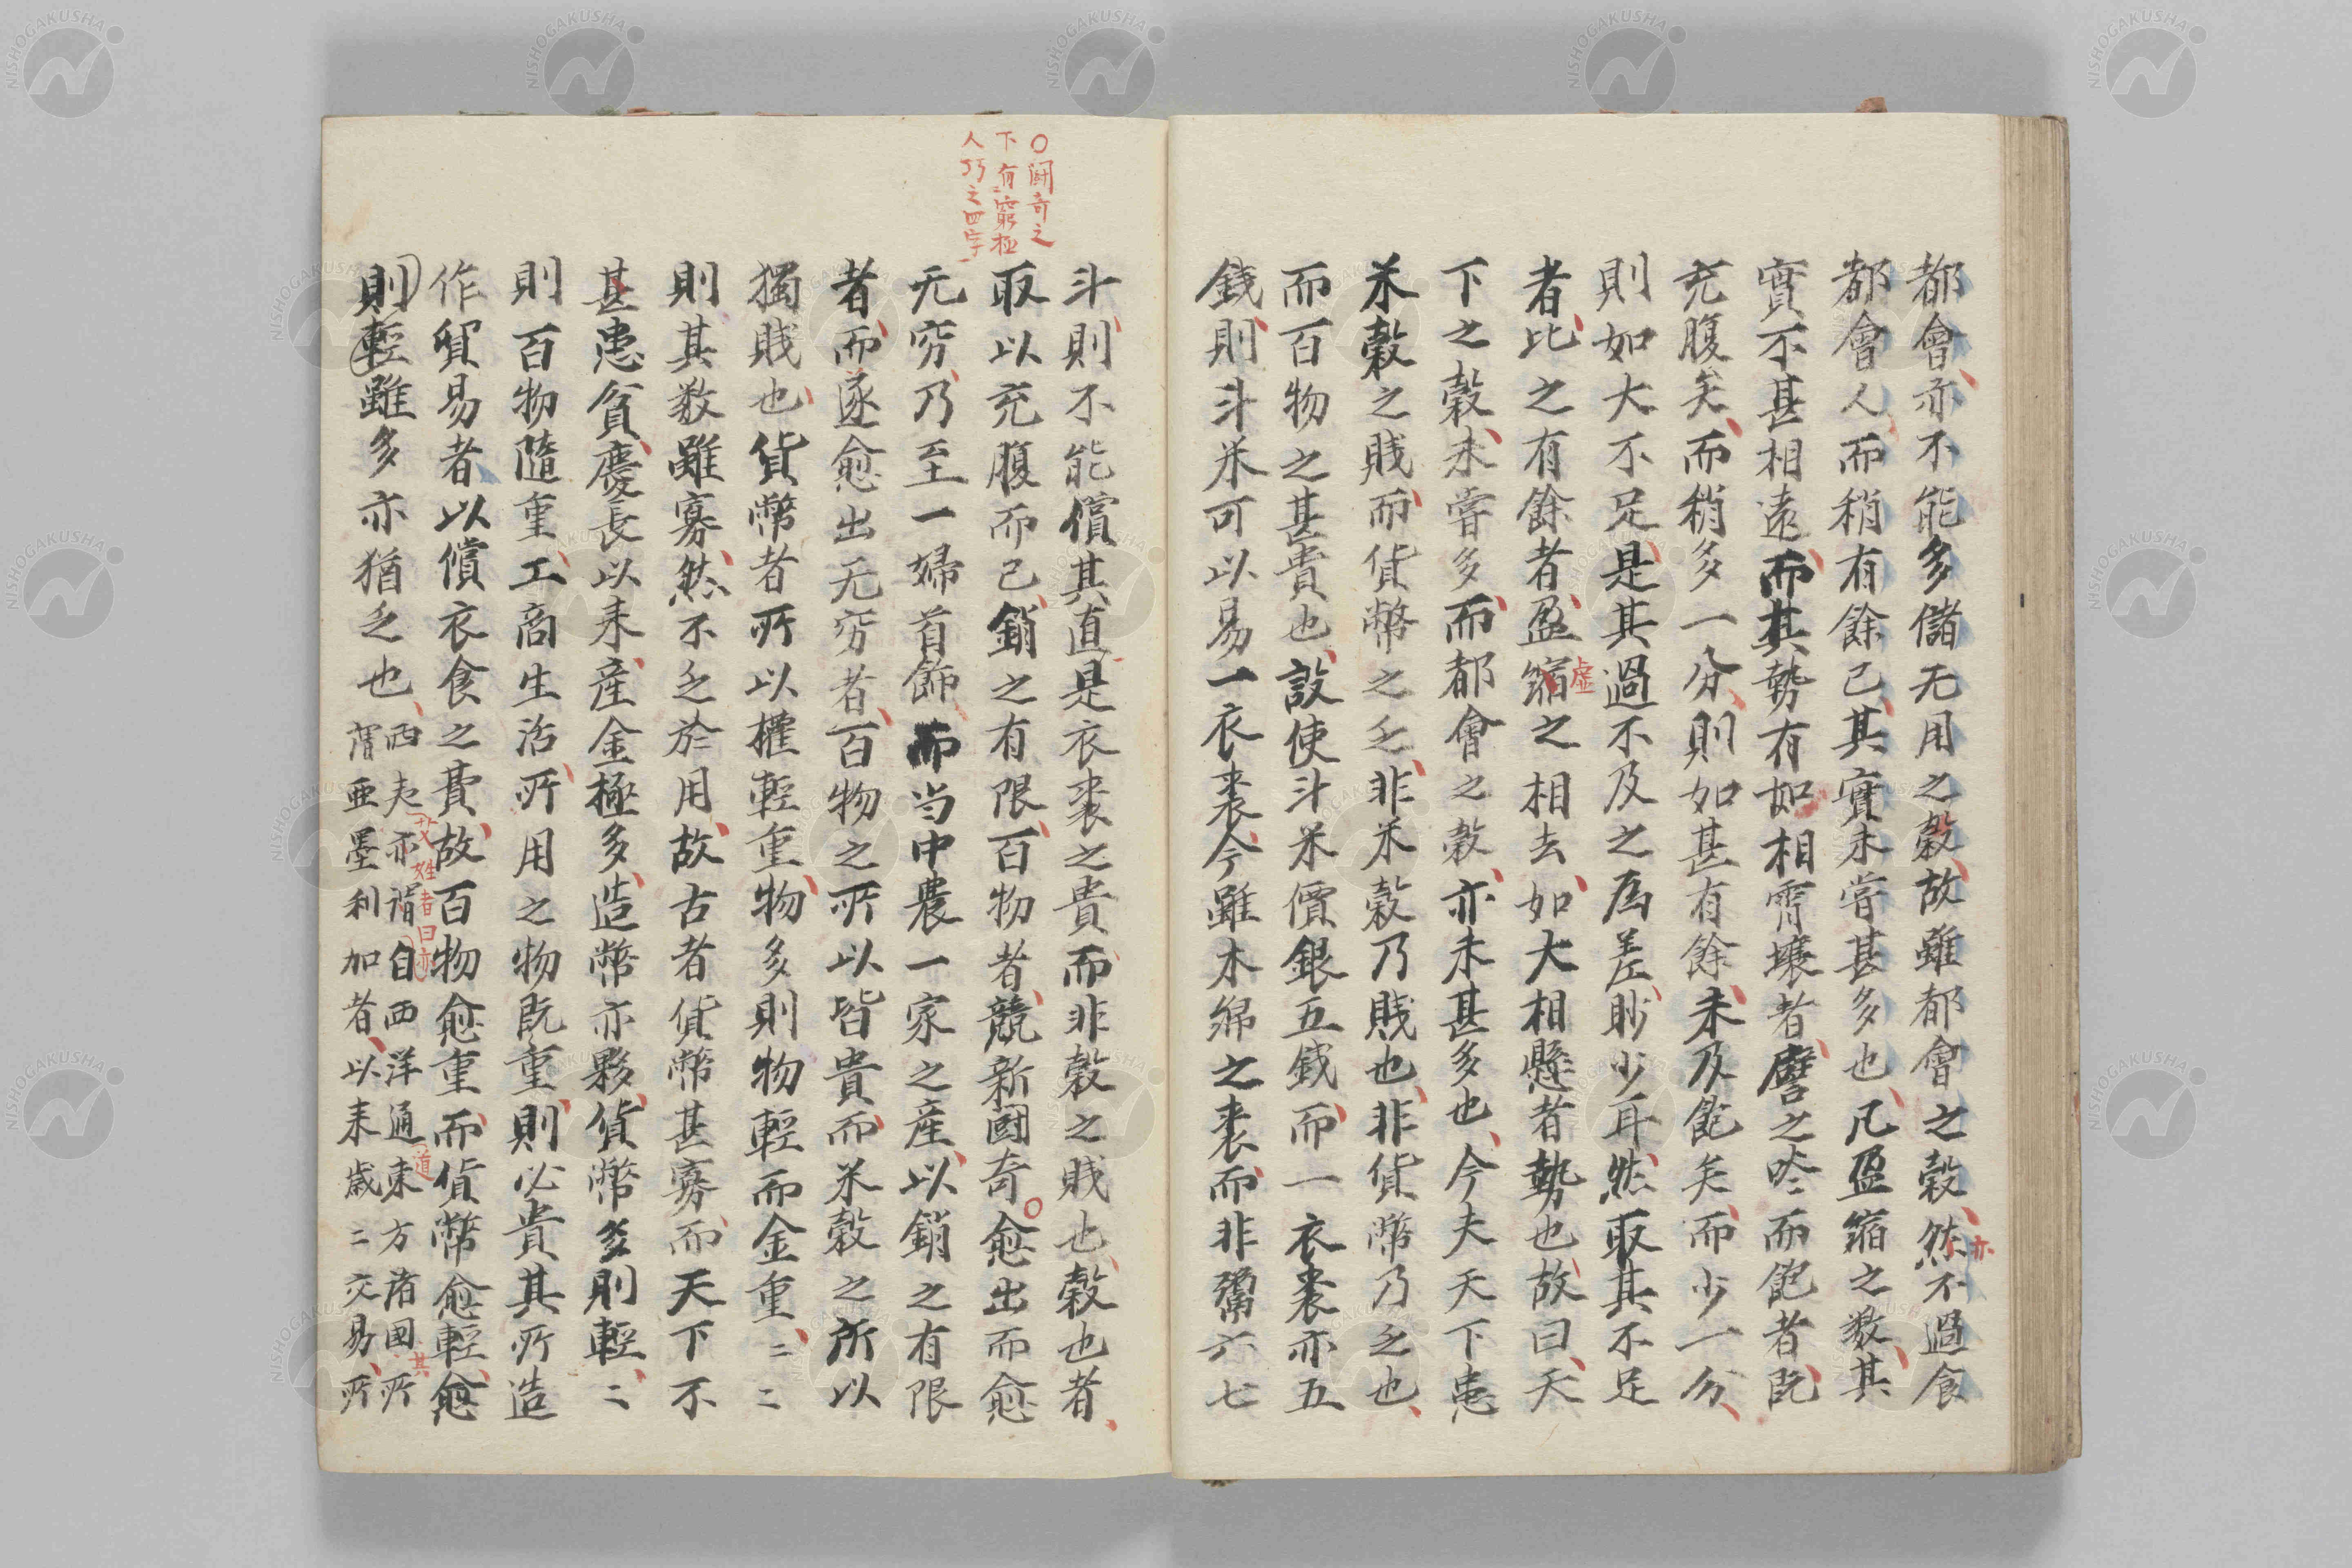 都會亦不能多儲无用之穀故雖都會之穀然不過食
亦
都會人而稍有餘已其實未嘗甚多也凡盈縮之数其
實不甚相遠而其勢有如相霄壤者譬之吃而飽者既
充腹矣而稍多一分則如甚有餘未及飽矣而少一分
則如大不足是其過不及之為差眇少耳然取其不足
者比之有餘者盈縮之相去如大相懸者勢也故曰天
虚
下之穀未嘗多而都會之穀亦未甚多也今夫天下患
米穀之賎而貨幣之乏非米穀乃賎也非貨幣乃乏也
而百物之甚貴也設使斗米價銀五錢而一衣裘亦五
錢則斗米可以易一衣裘今雖木綿之裘而非鬻六七
〇闘奇之
下有窮極
人巧之四字
斗則不能償其直是衣裘之貴而非穀之賎也穀也者
取以充腹而已銷之有限百物者競新闘奇〇愈出而愈
无窮乃至一婦首飾而当中農一家之産以銷之有限
者而遂愈出无窮者百物之所以皆貴而米穀之所以
獨賎也貨幣者所以權輕重物多則物輕而金重二二
則其数雖寡然不乏於用故古者貨幣甚寡而天下不
甚患貧慶長以来産金極多造幣亦夥貨幣多則輕二
則百物隨重工商生活所用之物既重則必貴其所造
作貿易者以償衣食之費故百物愈重而貨幣愈輕愈
則輕雖多亦猶乏也
西夷亦謂自西洋通東方諸国所
艾姓者曰亦
道
其
謂亜墨利加者以来歳二交易所